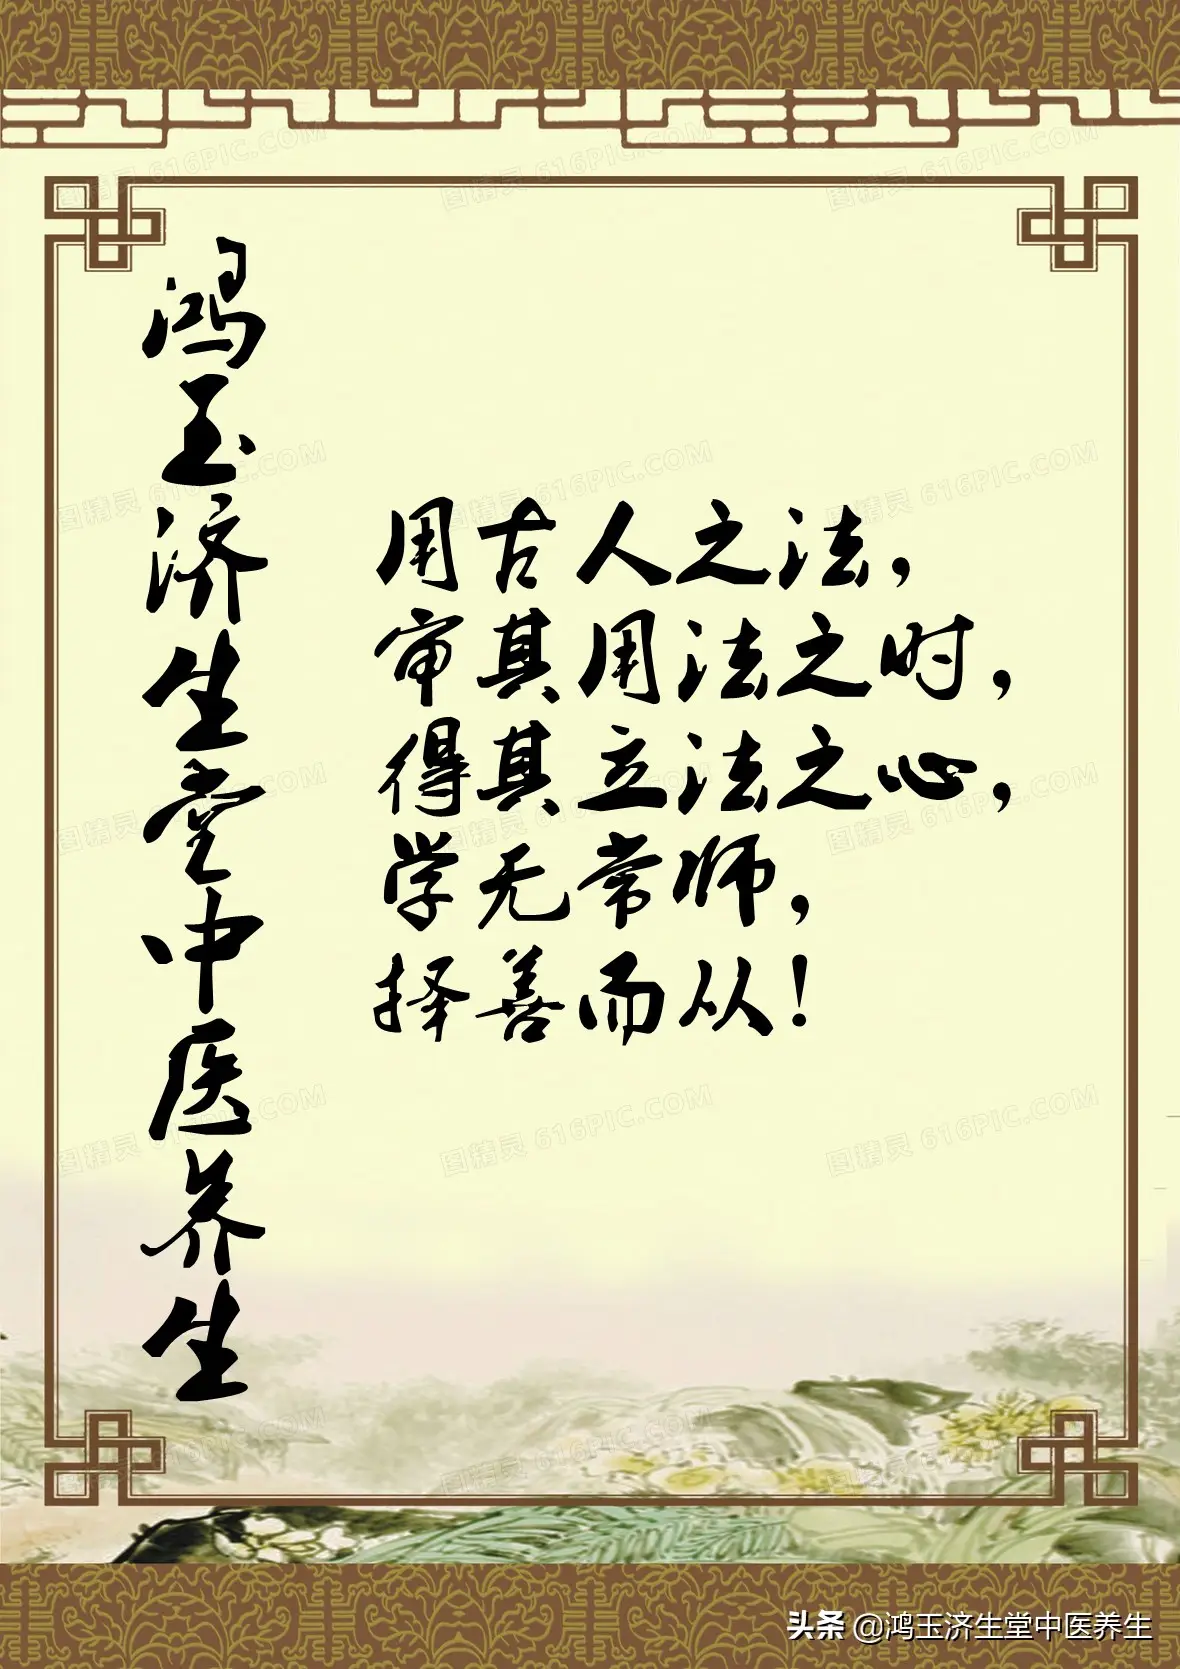 鸿玉济生堂中医养生
用古人之法，
审其用法之时，
得其立法之心，
学无常师，
择善而从！
图精灵 616PIC.COM
头条 @鸿玉济生堂中医养生